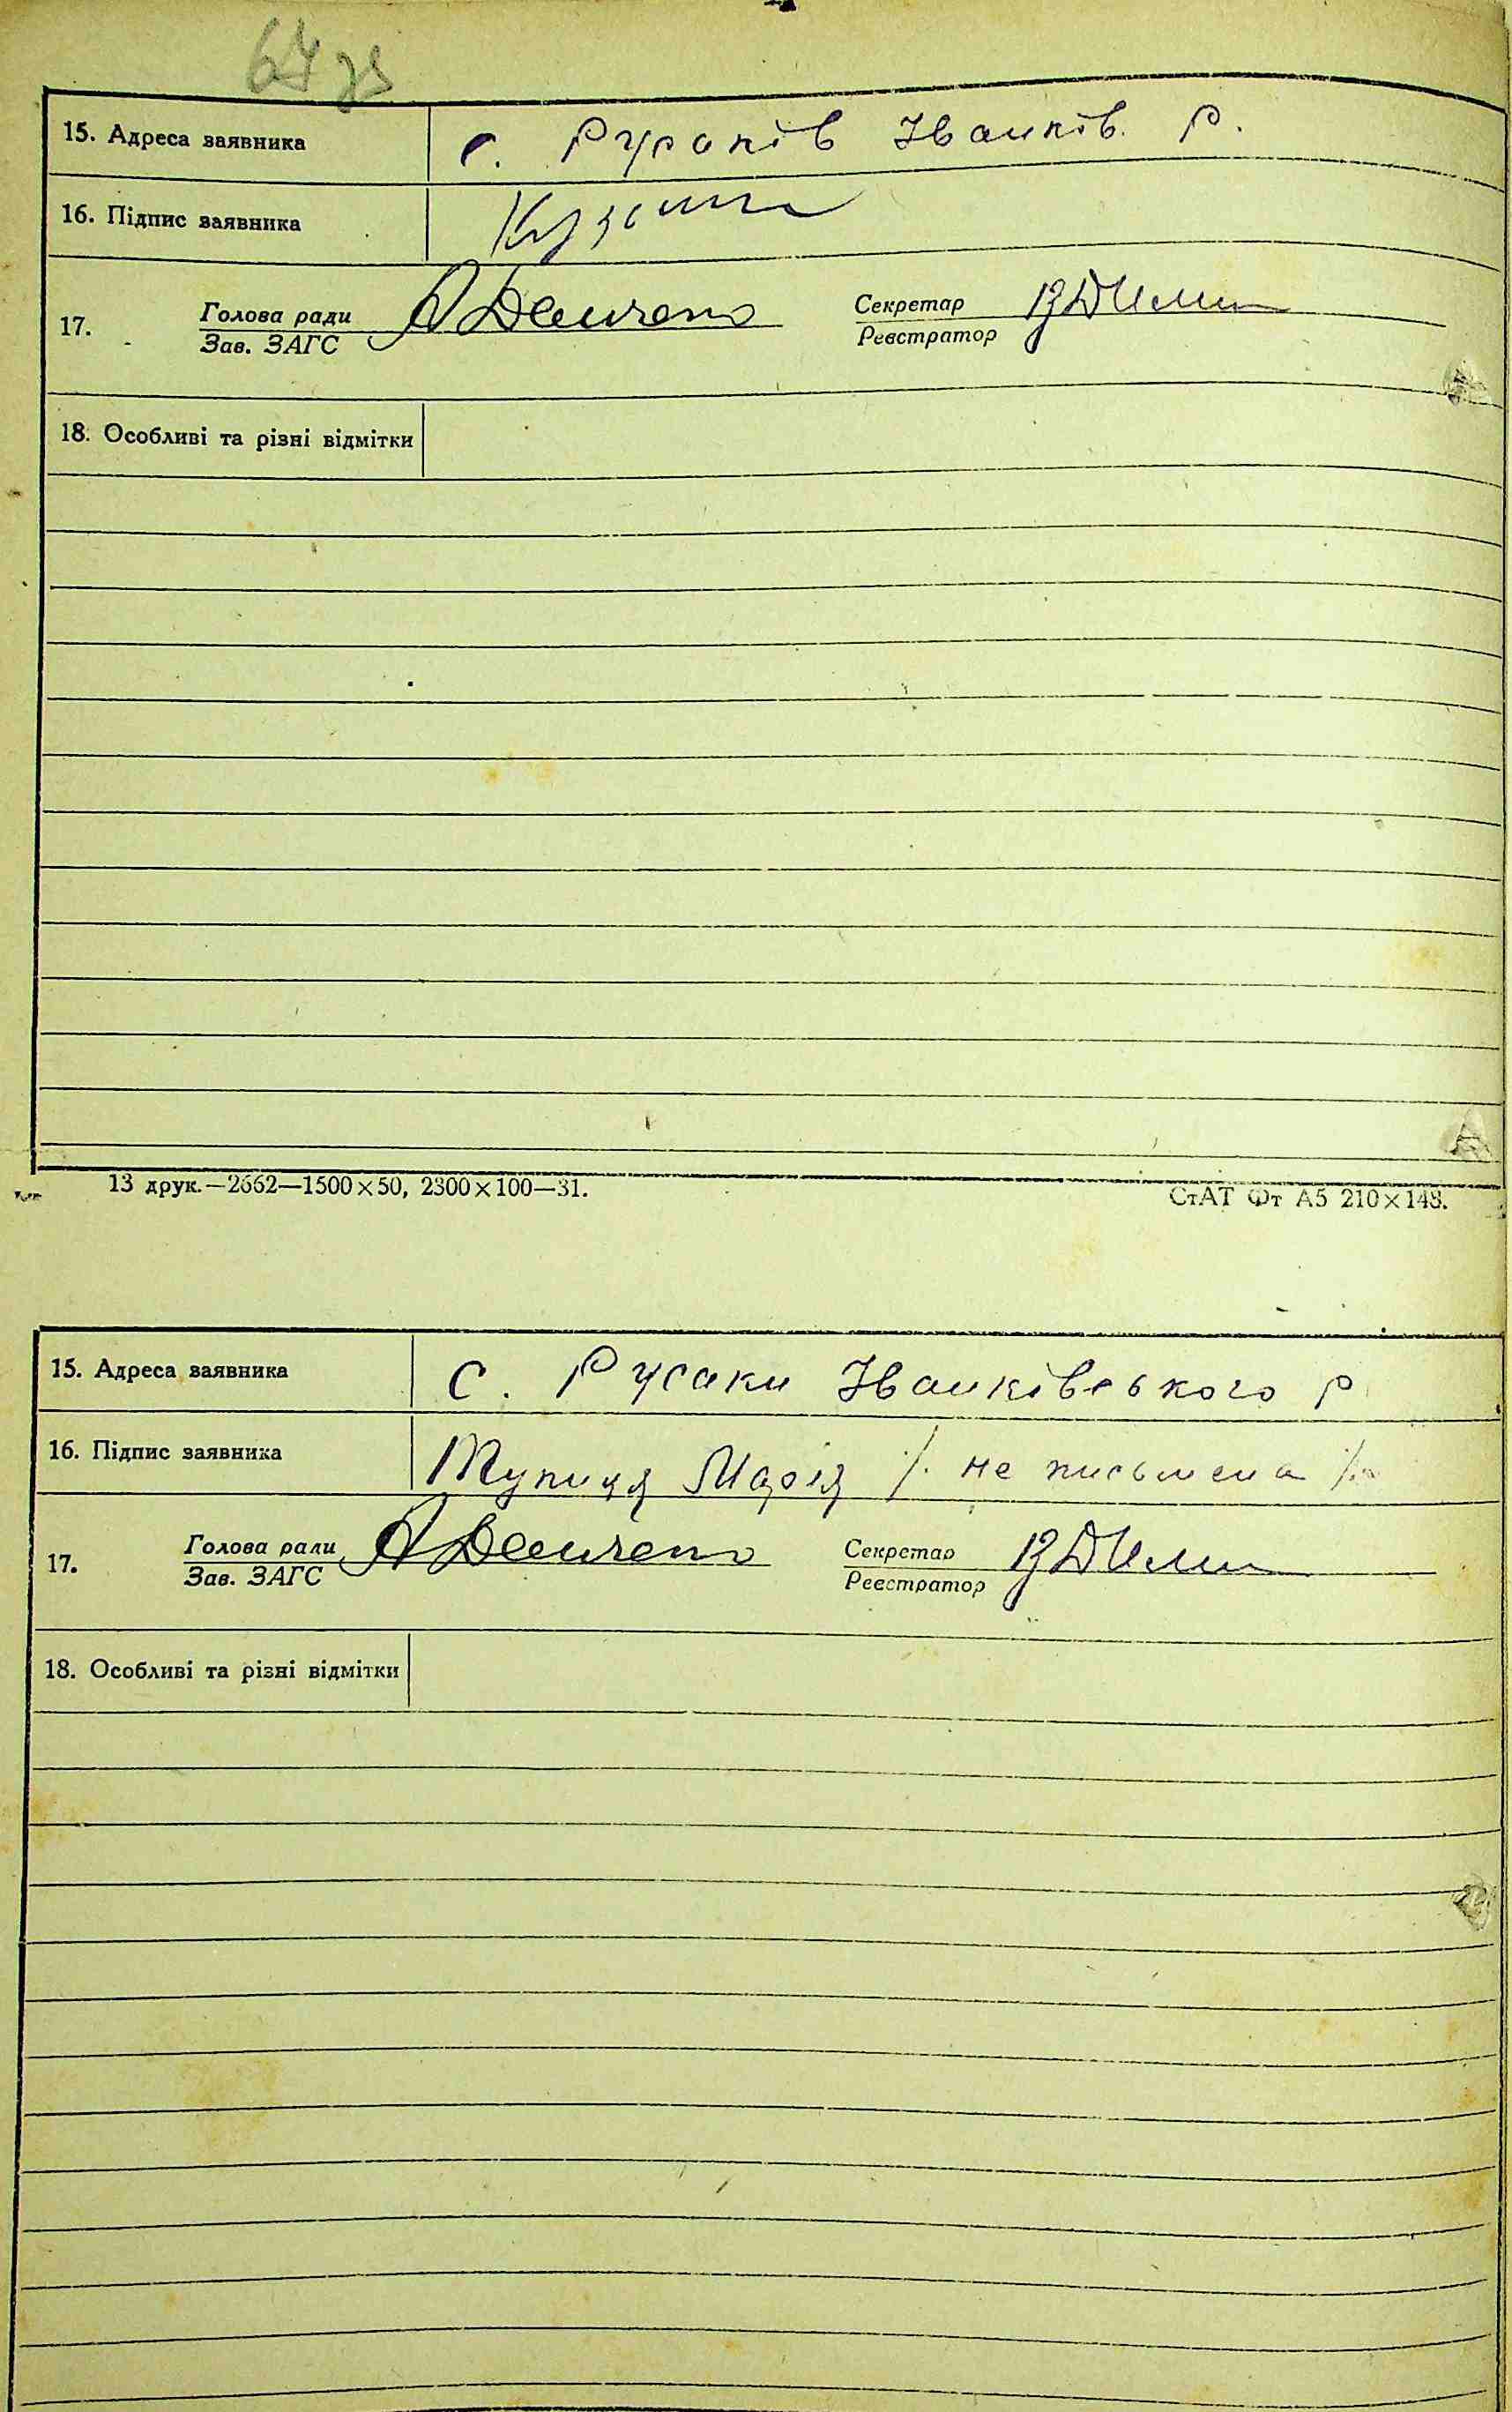 64 зв
15. Адреса заявника с. Русаків Іванків. р.
16. Підпис заявника
17. Голова ради Секретар
Зав. ЗАГС Реєстратор
18. Особливі та різні відмітки
13 друк.—2662—1500×50, 2300×100—31. СтАТ Фт А5 210×148.
15. Адреса заявника с. Русаки Іванківського р
16. Підпис заявника Тупиця Марія /. не письмена /.
17. Голова ради Секретар
Зав. ЗАГС Реєстратор
18. Особливі та різні відмітки